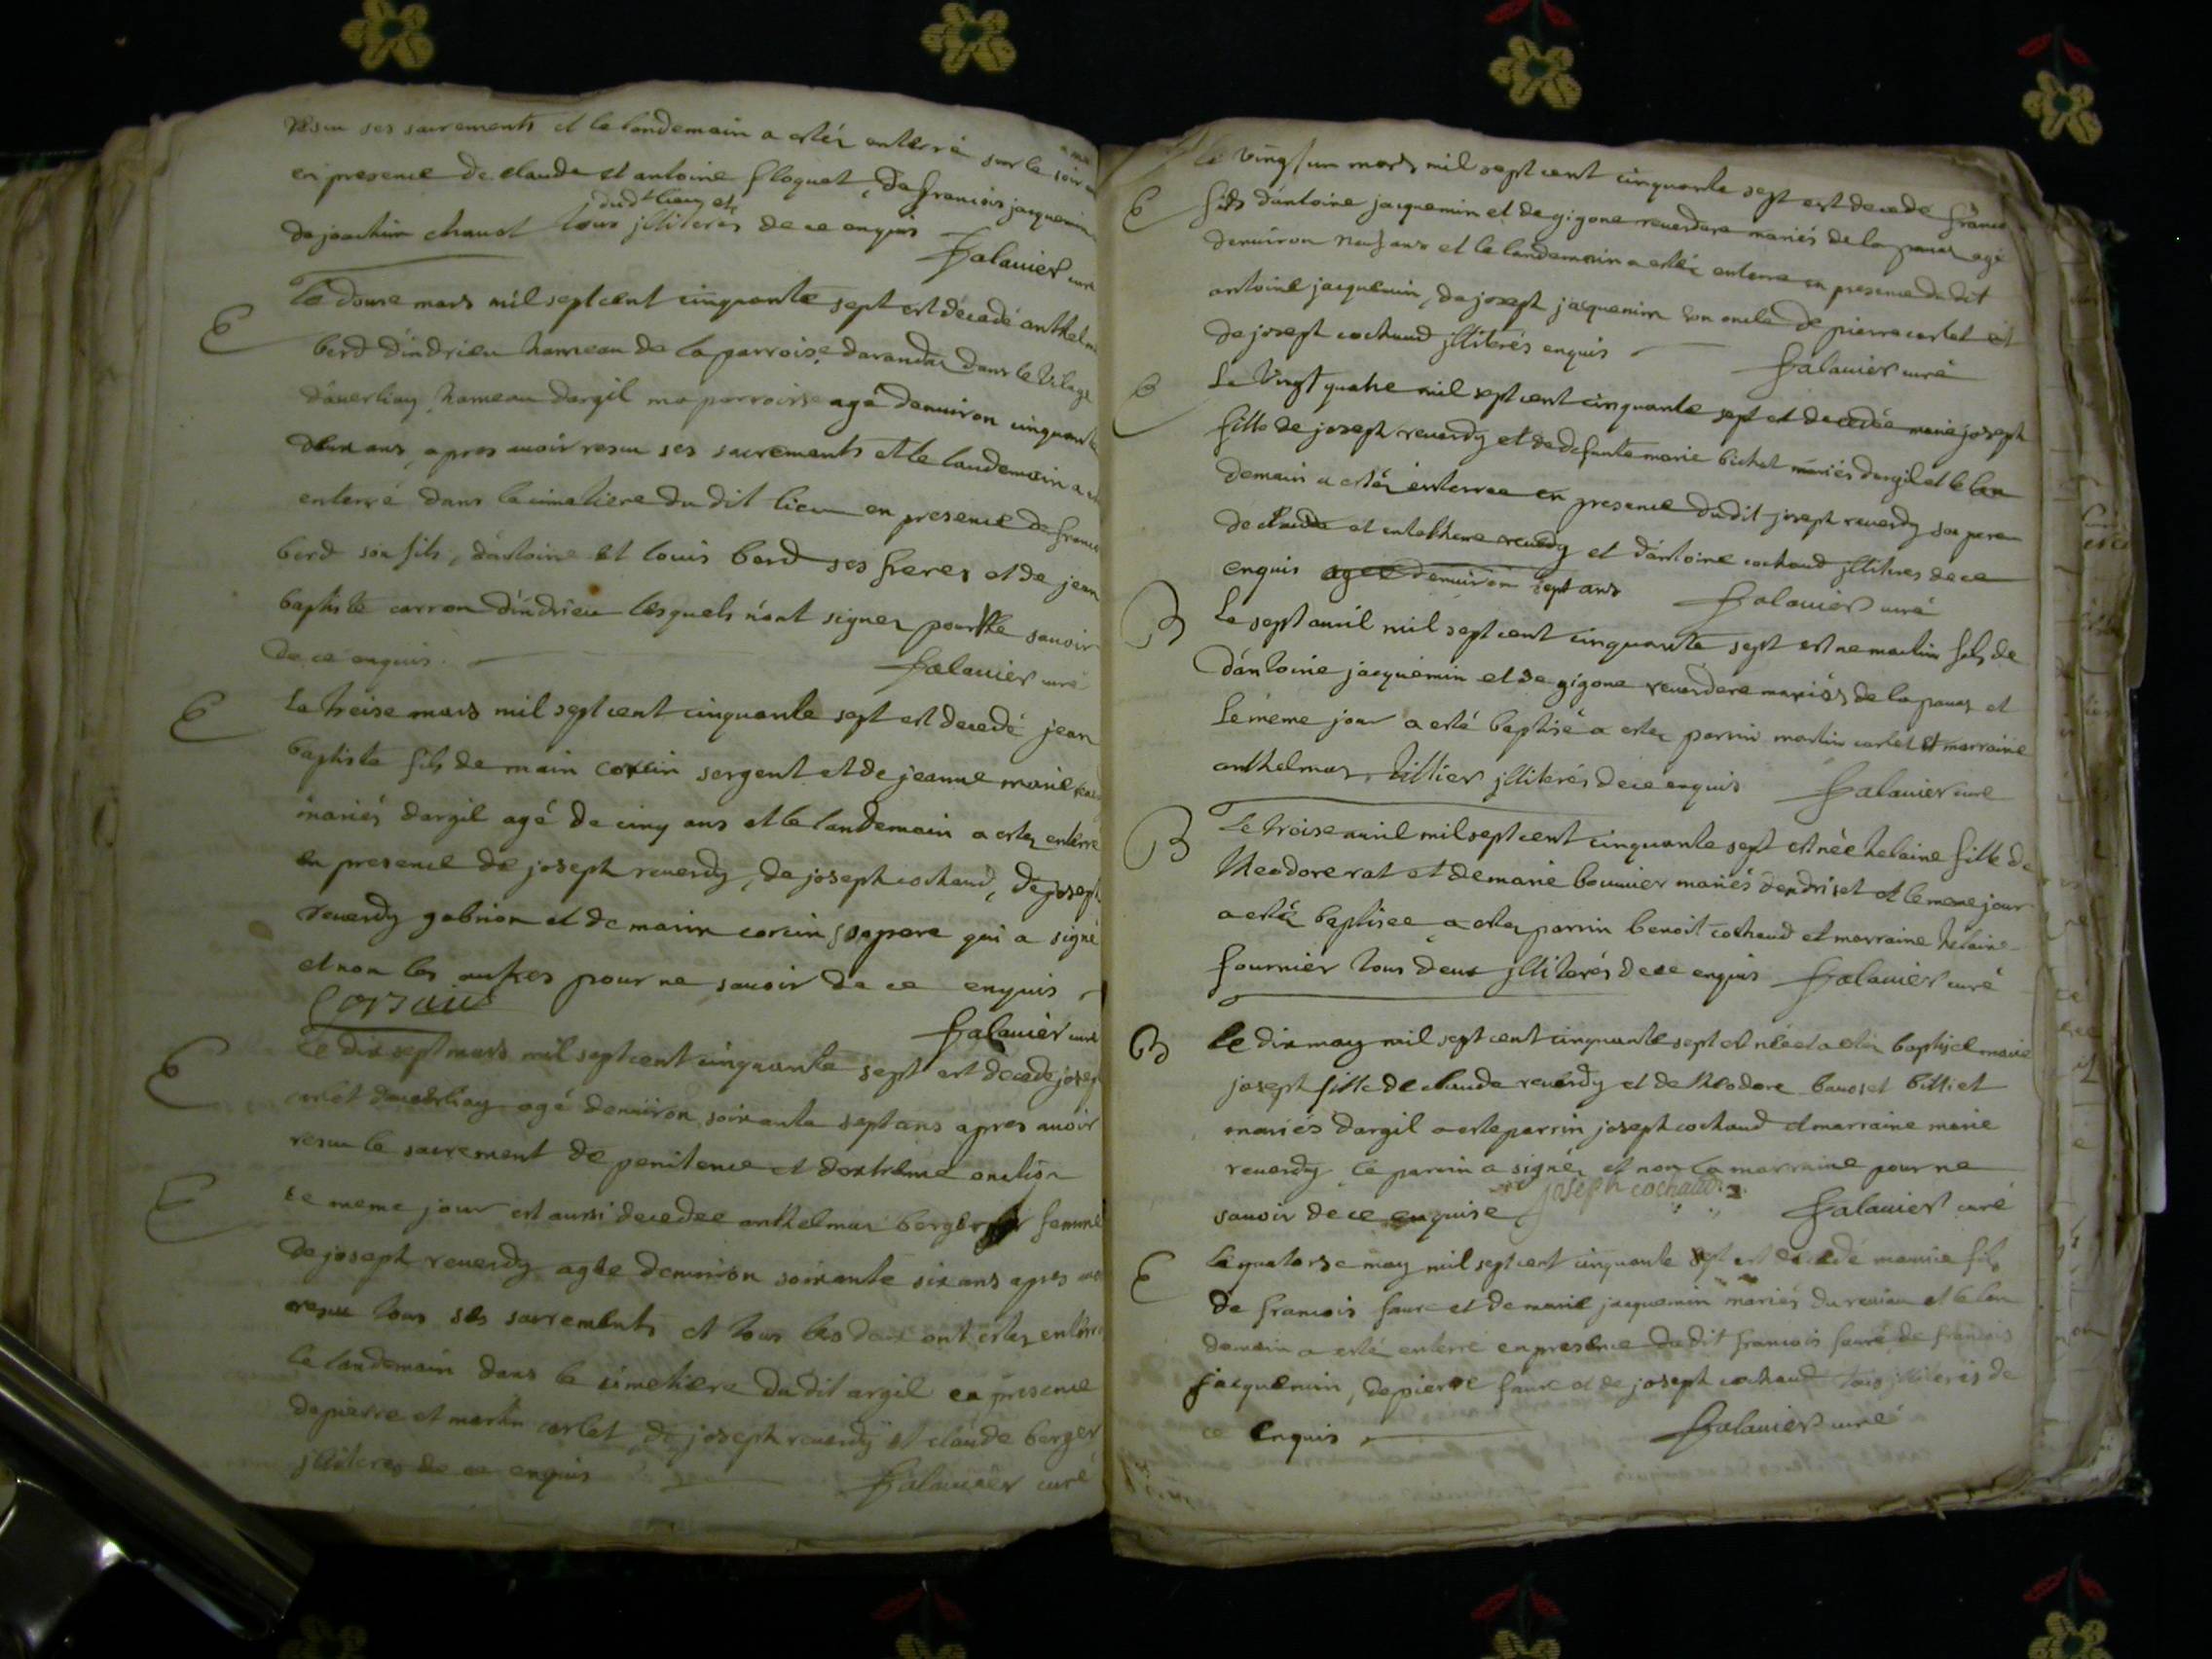 resu ses sacrements et le landemain a estéz enterré sur le soir
en presence de claude et antoine floquet, de francois jacquemin
dudt lieu et
de joachim chanel tous jlliterés de ce enquis
falavier curé
Le douse mars mil sept cent cinquante sept est décedé anthelme
E
berd d'indrieu hameau de la parroise darandas dans le vilage
d'averliay hameau dargil ma parroisse agé denviron cinquante
deux ans, apres avoir resu ses sacrements et le landemain a
enterré dans le cimetiere du dit lieu en presence de francois
berd son fils, d'antoine et louis berd ses freres et de jean
baptiste carron d'indrieu lesquels n'ont signer pour ne savoir
de ce enquis.
falavier curé
E
Le treise mars mil sept cent cinquante sept est decedé jean
baptiste fils de marin corcin sergent et de jeanne marie
mariés dargil agé de cinq ans et le landemain a estez enterré
en presence de joseph reverdy, de joseph cochaud, de joseph
reverdy gabrion et de marin corcin sapere qui a signé
et non les autres pour ne savoir de ce enquis
Corsain
falavier curé
E
Le dix sept mars mil sept cent cinquante sept est decede joseph
carlet daverliay agé denviron soixante sept ans apres avoir
resu le sacrement de penitence et dextrême onction
E
Le meme jour est aussi decedee anthelmaz berger femme
de joseph reverdy agée denviron soixante six ans apres avoir
resu tous ses sacrements et tous les deux ont estez enterré
le landemain dans le cimetiere du dit argil en presence
de pierre et martin carlet, de joseph reverdy et claude berger
jlliteres de ce enquis
falavier curé
Le vingt un mars mil sept cent cinquante sept est decedé francois
E
fils d'antoine jacquemin et de gigone reverdere mariés de la pavaz agé
denviron neuf ans et le landemain a estéz enterre en presence du dit
antoine jacquemin, de joseph jacquemin son oncle de pierre carlet et
de joseph cochaud jlliterés enquis
falavier curé
E
Le vingt quatre mil sept cent cinquante sept est decedée marie joseph
fille de joseph reverdy et de defunte marie bichat mariés dargil et le lan
demain a estéz enterree en presence du dit joseph reverdy son pere
de claude et anthelme reverdy et d'antoine cochaud jlliteres de ce
enquis agee denviron sept ans
falavier curé
B
Le sept avril mil sept cent cinquante sept est ne martin fils de
d'antoine jacquemin et de gigone reverdere mariés de la pavaz et
le même jour a esté baptisé a estez parrin martin carlet et marraine
anthelmaz tillier jlliterés de ce enquis
falavier curé
B
Le treise avril mil sept cent cinquante sept est née helaine fille de
theodore rat et de marie bouvier mariés dendriset et le meme jour
a estéz baptisee a estez parrin benoit cochaud et marraine helaine
fournier tous deux jlliterés de ce enquis
falavier curé
B
Le dix may mil sept cent cinquante sept est née et a estéz baptisée marie
joseph fille de claude reverdy et de theodore bauoset billiet
mariés dargil a esté parrin joseph cochaud et marraine marie
reverdy le parrin a signéz et non la marraine pour ne
savoir de ce enquise
joseph cochaud
falavier curé
E
Le quatorse may mil sept cent cinquante sept est decedé maurice fils
de francois faure et de marie jacquemin mariés du reviau et le lan
demain a esté enterré en presence du dit francois faure de francois
jacquemin, de pierre faure et de joseph cochaud tous jlliterés de
ce enquis
falavier curé